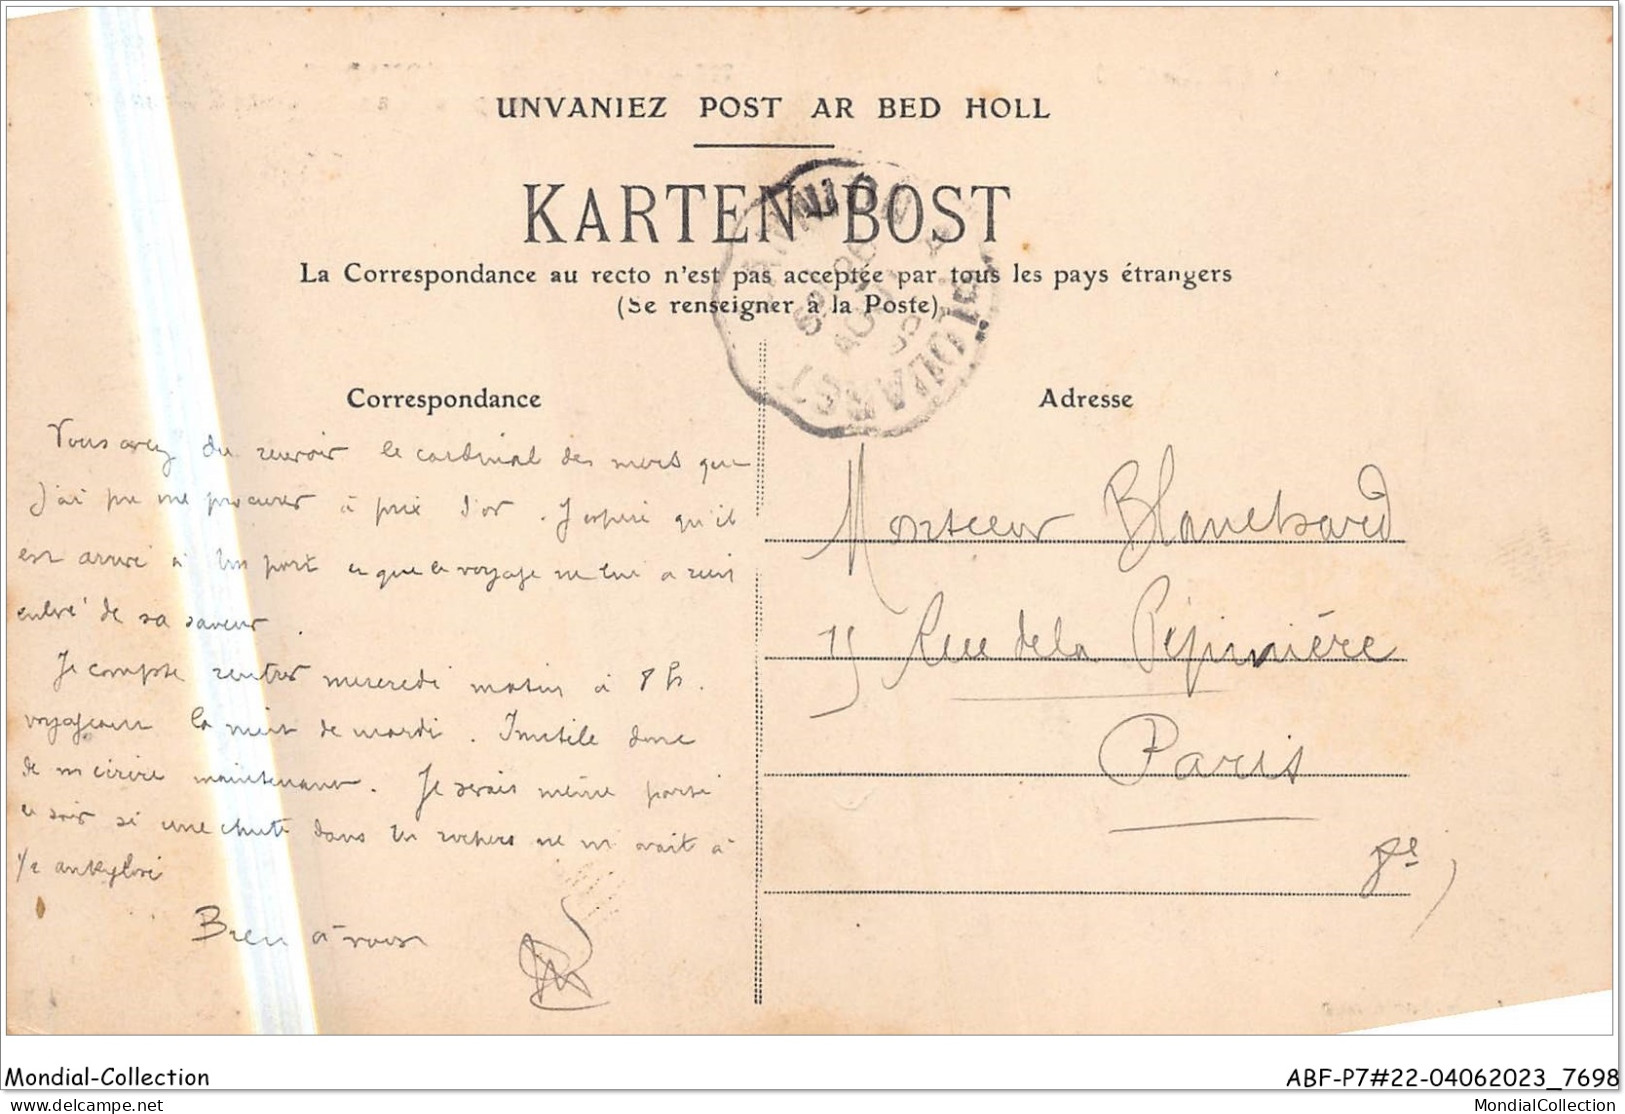 UNVANIEZ POST AR BED HOLL
KARTEN-BOST
La Correspondance au recto n'est pas acceptée par tous les pays étrangers
(Se renseigner à la Poste)
LANNION
Correspondance
Adresse
Vous avez du recevoir le cardinal des mers que
j'ai pu me procurer à prix d'or. J'espère qu'il
est arrivé à bon port et que le voyage ne lui a rien
enlevé de sa saveur.
Je compte rentrer mercredi matin à 8 h.
voyageant la nuit de mardi. Inutile donc
de m'écrire maintenant. Je serais même parti
ce soir si une chute dans les rochers ne m'avait à
1/2 ankylosé
Bien à vous
Monsieur Blanchard
15 Rue de la Pépinière
Paris
8e
Mondial-Collection
ABF-P7#22-04062023_7698
delcampe.net
MondialCollection